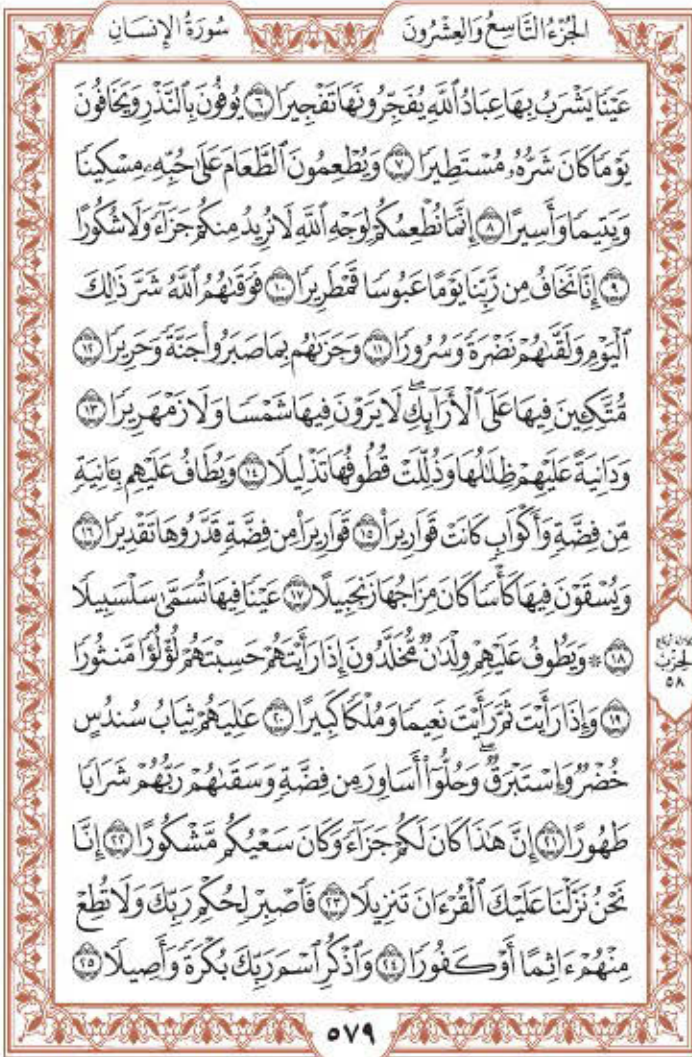 الجُزْءُ التَّاسِعُ وَالعِشْرُونَ سُورَةُ الإِنسَانِ
عَيْنًا يَشْرَبُ بِهَا عِبَادُ ٱللَّهِ يُفَجِّرُونَهَا تَفْجِيرًا ٦ يُوفُونَ بِٱلنَّذْرِ وَيَخَافُونَ
يَوْمًا كَانَ شَرُّهُۥ مُسْتَطِيرًا ٧ وَيُطْعِمُونَ ٱلطَّعَامَ عَلَىٰ حُبِّهِۦ مِسْكِينًا
وَيَتِيمًا وَأَسِيرًا ٨ إِنَّمَا نُطْعِمُكُمْ لِوَجْهِ ٱللَّهِ لَا نُرِيدُ مِنكُمْ جَزَآءً وَلَا شُكُورًا
٩ إِنَّا نَخَافُ مِن رَّبِّنَا يَوْمًا عَبُوسًا قَمْطَرِيرًا ١٠ فَوَقَىٰهُمُ ٱللَّهُ شَرَّ ذَٰلِكَ
ٱلْيَوْمِ وَلَقَّىٰهُمْ نَضْرَةً وَسُرُورًا ١١ وَجَزَىٰهُم بِمَا صَبَرُوا۟ جَنَّةً وَحَرِيرًا ١٢
مُّتَّكِـِٔينَ فِيهَا عَلَى ٱلْأَرَآئِكِ ۖ لَا يَرَوْنَ فِيهَا شَمْسًا وَلَا زَمْهَرِيرًا ١٣
وَدَانِيَةً عَلَيْهِمْ ظِلَٰلُهَا وَذُلِّلَتْ قُطُوفُهَا تَذْلِيلًا ١٤ وَيُطَافُ عَلَيْهِم بِـَٔانِيَةٍ
مِّن فِضَّةٍ وَأَكْوَابٍ كَانَتْ قَوَارِيرَا۠ ١٥ قَوَارِيرَا۟ مِن فِضَّةٍ قَدَّرُوهَا تَقْدِيرًا ١٦
وَيُسْقَوْنَ فِيهَا كَأْسًا كَانَ مِزَاجُهَا زَنجَبِيلًا ١٧ عَيْنًا فِيهَا تُسَمَّىٰ سَلْسَبِيلًا
١٨ ۞ وَيَطُوفُ عَلَيْهِمْ وِلْدَٰنٌ مُّخَلَّدُونَ إِذَا رَأَيْتَهُمْ حَسِبْتَهُمْ لُؤْلُؤًا مَّنثُورًا
١٩ وَإِذَا رَأَيْتَ ثَمَّ رَأَيْتَ نَعِيمًا وَمُلْكًا كَبِيرًا ٢٠ عَٰلِيَهُمْ ثِيَابُ سُندُسٍ
خُضْرٌ وَإِسْتَبْرَقٌ ۖ وَحُلُّوٓا۟ أَسَاوِرَ مِن فِضَّةٍ وَسَقَىٰهُمْ رَبُّهُمْ شَرَابًا
طَهُورًا ٢١ إِنَّ هَٰذَا كَانَ لَكُمْ جَزَآءً وَكَانَ سَعْيُكُم مَّشْكُورًا ٢٢ إِنَّا
نَحْنُ نَزَّلْنَا عَلَيْكَ ٱلْقُرْءَانَ تَنزِيلًا ٢٣ فَٱصْبِرْ لِحُكْمِ رَبِّكَ وَلَا تُطِعْ
مِنْهُمْ ءَاثِمًا أَوْ كَفُورًا ٢٤ وَٱذْكُرِ ٱسْمَ رَبِّكَ بُكْرَةً وَأَصِيلًا ٢٥
الحِزْبُ
٥٨
٥٧٩